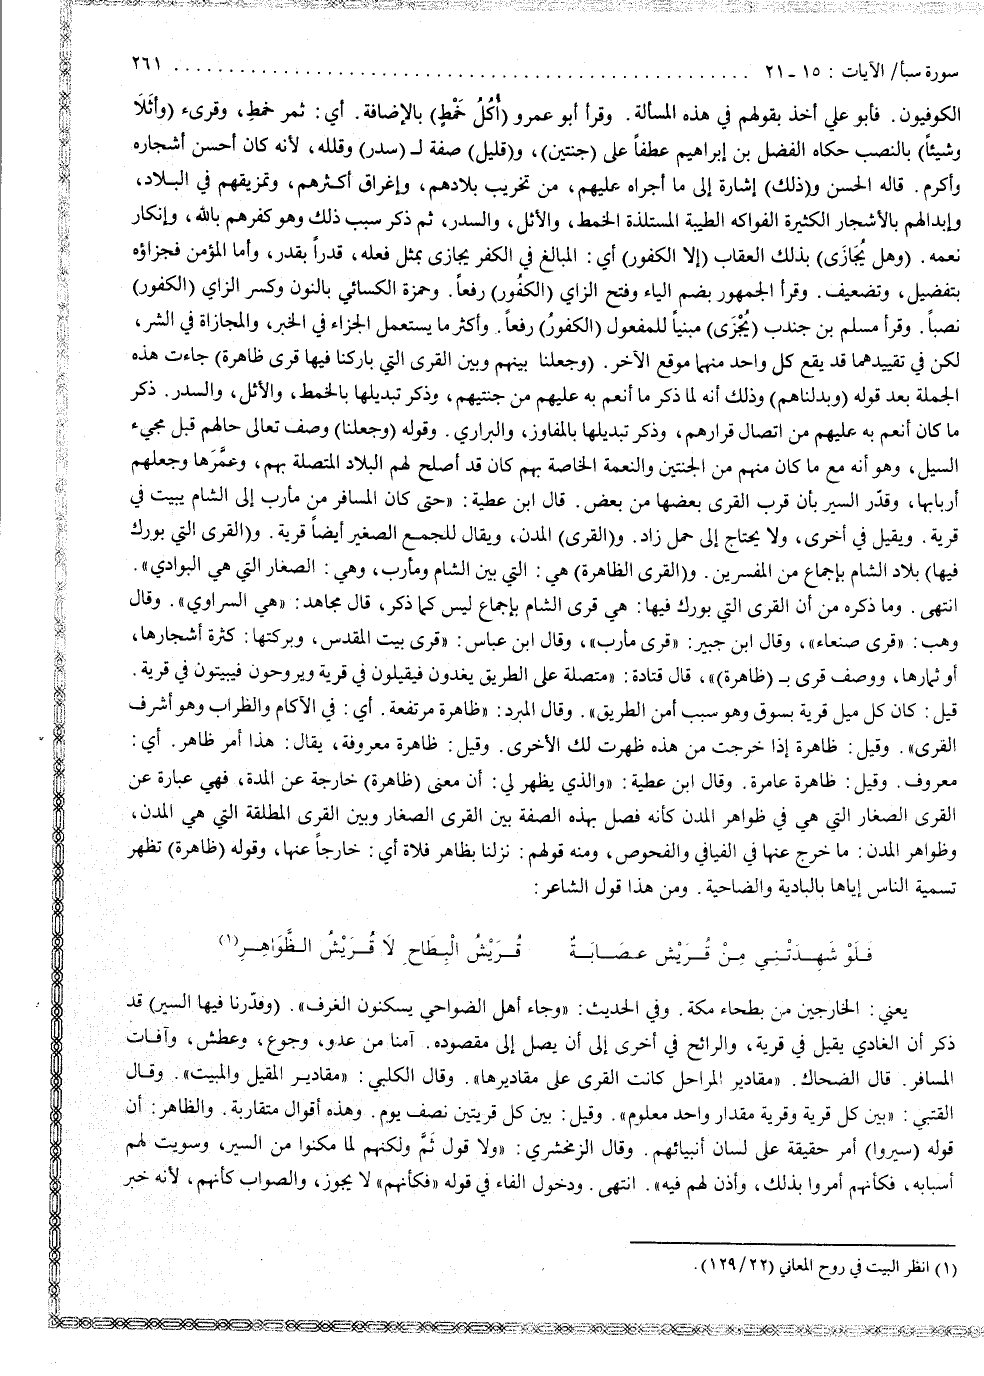 سورة سبأ/ الآيات : ١٥ ـ ٢١ ........................................................ ٢٦١
الكوفيون . فأبو علي أخذ بقولهم في هذه المسألة . وقرأ أبو عمرو (أُكُلُ خَمْطٍ) بالإضافة . أي : ثمر خمط ، وقرىء (وأثلاً
وشيئاً) بالنصب حكاه الفضل بن إبراهيم عطفاً على (جنتين) ، و(قليل) صفة لـ (سدر) وقلله ، لأنه كان أحسن أشجاره
وأكرم . قاله الحسن و(ذلك) إشارة إلى ما أجراه عليهم ، من تخريب بلادهم ، وإغراق أكثرهم ، وتمزيقهم في البلاد ،
وإبدالهم بالأشجار الكثيرة الفواكه الطيبة المستلذة الخمط ، والأثل ، والسدر ، ثم ذكر سبب ذلك وهو كفرهم بالله ، وإنكار
نعمه . (وهل يُجَازَى) بذلك العقاب (إلا الكفور) أي : المبالغ في الكفر يجازى بمثل فعله ، قدراً بقدر ، وأما المؤمن فجزاؤه
بتفضيل ، وتضعيف . وقرأ الجمهور بضم الياء وفتح الزاي (الكفُور) رفعاً . وحمزة الكسائي بالنون وكسر الزاي (الكفور)
نصباً . وقرأ مسلم بن جندب (يُجْزَى) مبنياً للمفعول (الكفورُ) رفعاً . وأكثر ما يستعمل الجزاء في الخير ، والمجازاة في الشر ،
لكن في تقييدهما قد يقع كل واحد منهما موقع الآخر . (وجعلنا بينهم وبين القرى التي باركنا فيها قرى ظاهرة) جاءت هذه
الجملة بعد قوله (وبدلناهم) وذلك أنه لما ذكر ما أنعم به عليهم من جنتيهم ، وذكر تبديلها بالخمط ، والأثل ، والسدر . ذكر
ما كان أنعم به عليهم من اتصال قرارهم ، وذكر تبديلها بالمفاوز ، والبراري . وقوله (وجعلنا) وصف تعالى حالهم قبل مجيء
السيل ، وهو أنه مع ما كان منهم من الجنتين والنعمة الخاصة بهم كان قد أصلح لهم البلاد المتصلة بهم ، وعمَّرَها وجعلهم
أربابها ، وقدّر السير بأن قرب القرى بعضها من بعض . قال ابن عطية : «حتى كان المسافر من مأرب إلى الشام يبيت في
قرية . ويقيل في أخرى ، ولا يحتاج إلى حمل زاد . و(القرى) المدن ، ويقال للجمع الصغير أيضاً قرية . و(القرى التي بورك
فيها) بلاد الشام بإجماع من المفسرين . و(القرى الظاهرة) هي : التي بين الشام ومأرب ، وهي : الصغار التي هي البوادي» .
انتهى . وما ذكره من أن القرى التي بورك فيها : هي قرى الشام بإجماع ليس كما ذكر ، قال مجاهد : «هي السراوي» . وقال
وهب : «قرى صنعاء» ، وقال ابن جبير : «قرى مأرب» ، وقال ابن عباس : «قرى بيت المقدس ، وبركتها : كثرة أشجارها ،
أو ثمارها ، ووصف قرى بـ (ظاهرة)» ، قال قتادة : «متصلة على الطريق يغدون فيقيلون في قرية ويروحون فيبيتون في قرية .
قيل : كان كل ميل قرية بسوق وهو سبب أمن الطريق» . وقال المبرد : «ظاهرة مرتفعة . أي : في الآكام والظراب وهو أشرف
القرى» . وقيل : ظاهرة إذا خرجت من هذه ظهرت لك الأخرى . وقيل : ظاهرة معروفة ، يقال : هذا أمر ظاهر . أي :
معروف . وقيل : ظاهرة عامرة . وقال ابن عطية : «والذي يظهر لي : أن معنى (ظاهرة) خارجة عن المدة ، فهي عبارة عن
القرى الصغار التي هي في ظواهر المدن كأنه فصل بهذه الصفة بين القرى الصغار وبين القرى المطلقة التي هي المدن ،
وظواهر المدن : ما خرج عنها في الفيافي والفحوص ، ومنه قولهم : نزلنا بظاهر فلاة أي : خارجاً عنها ، وقوله (ظاهرة) تظهر
تسمية الناس إياها بالبادية والضاحية . ومن هذا قول الشاعر :
فَلَوْ شَهِدَتْنِي مِنْ قُرَيْش عصَابَةٌ قُرَيْشُ الْبِطَاحِ لَا قُرَيْشُ الظَّوَاهِرِ(١)
يعني : الخارجين من بطحاء مكة . وفي الحديث : «وجاء أهل الضواحي يسكنون الغرف» . (وقدّرنا فيها السير) قد
ذكر أن الغادي يقيل في قرية ، والرائح في أخرى إلى أن يصل إلى مقصوده . آمنا من عدو ، وجوع ، وعطش ، وآفات
المسافر . قال الضحاك . «مقادير المراحل كانت القرى على مقاديرها» . وقال الكلبي : «مقادير المقيل والمبيت» . وقال
القتبي : «بين كل قرية وقرية مقدار واحد معلوم» . وقيل : بين كل قريتين نصف يوم . وهذه أقوال متقاربة . والظاهر : أن
قوله (سيروا) أمر حقيقة على لسان أنبيائهم . وقال الزمخشري : «ولا قول ثَمَّ ولكنهم لما مكنوا من السير ، وسويت لهم
أسبابه ، فكأنهم أمروا بذلك ، وأذن لهم فيه» . انتهى . ودخول الفاء في قوله «فكأنهم» لا يجوز ، والصواب كأنهم ، لأنه خبر
(١) انظر البيت في روح المعاني (٢٢/ ١٢٩) .